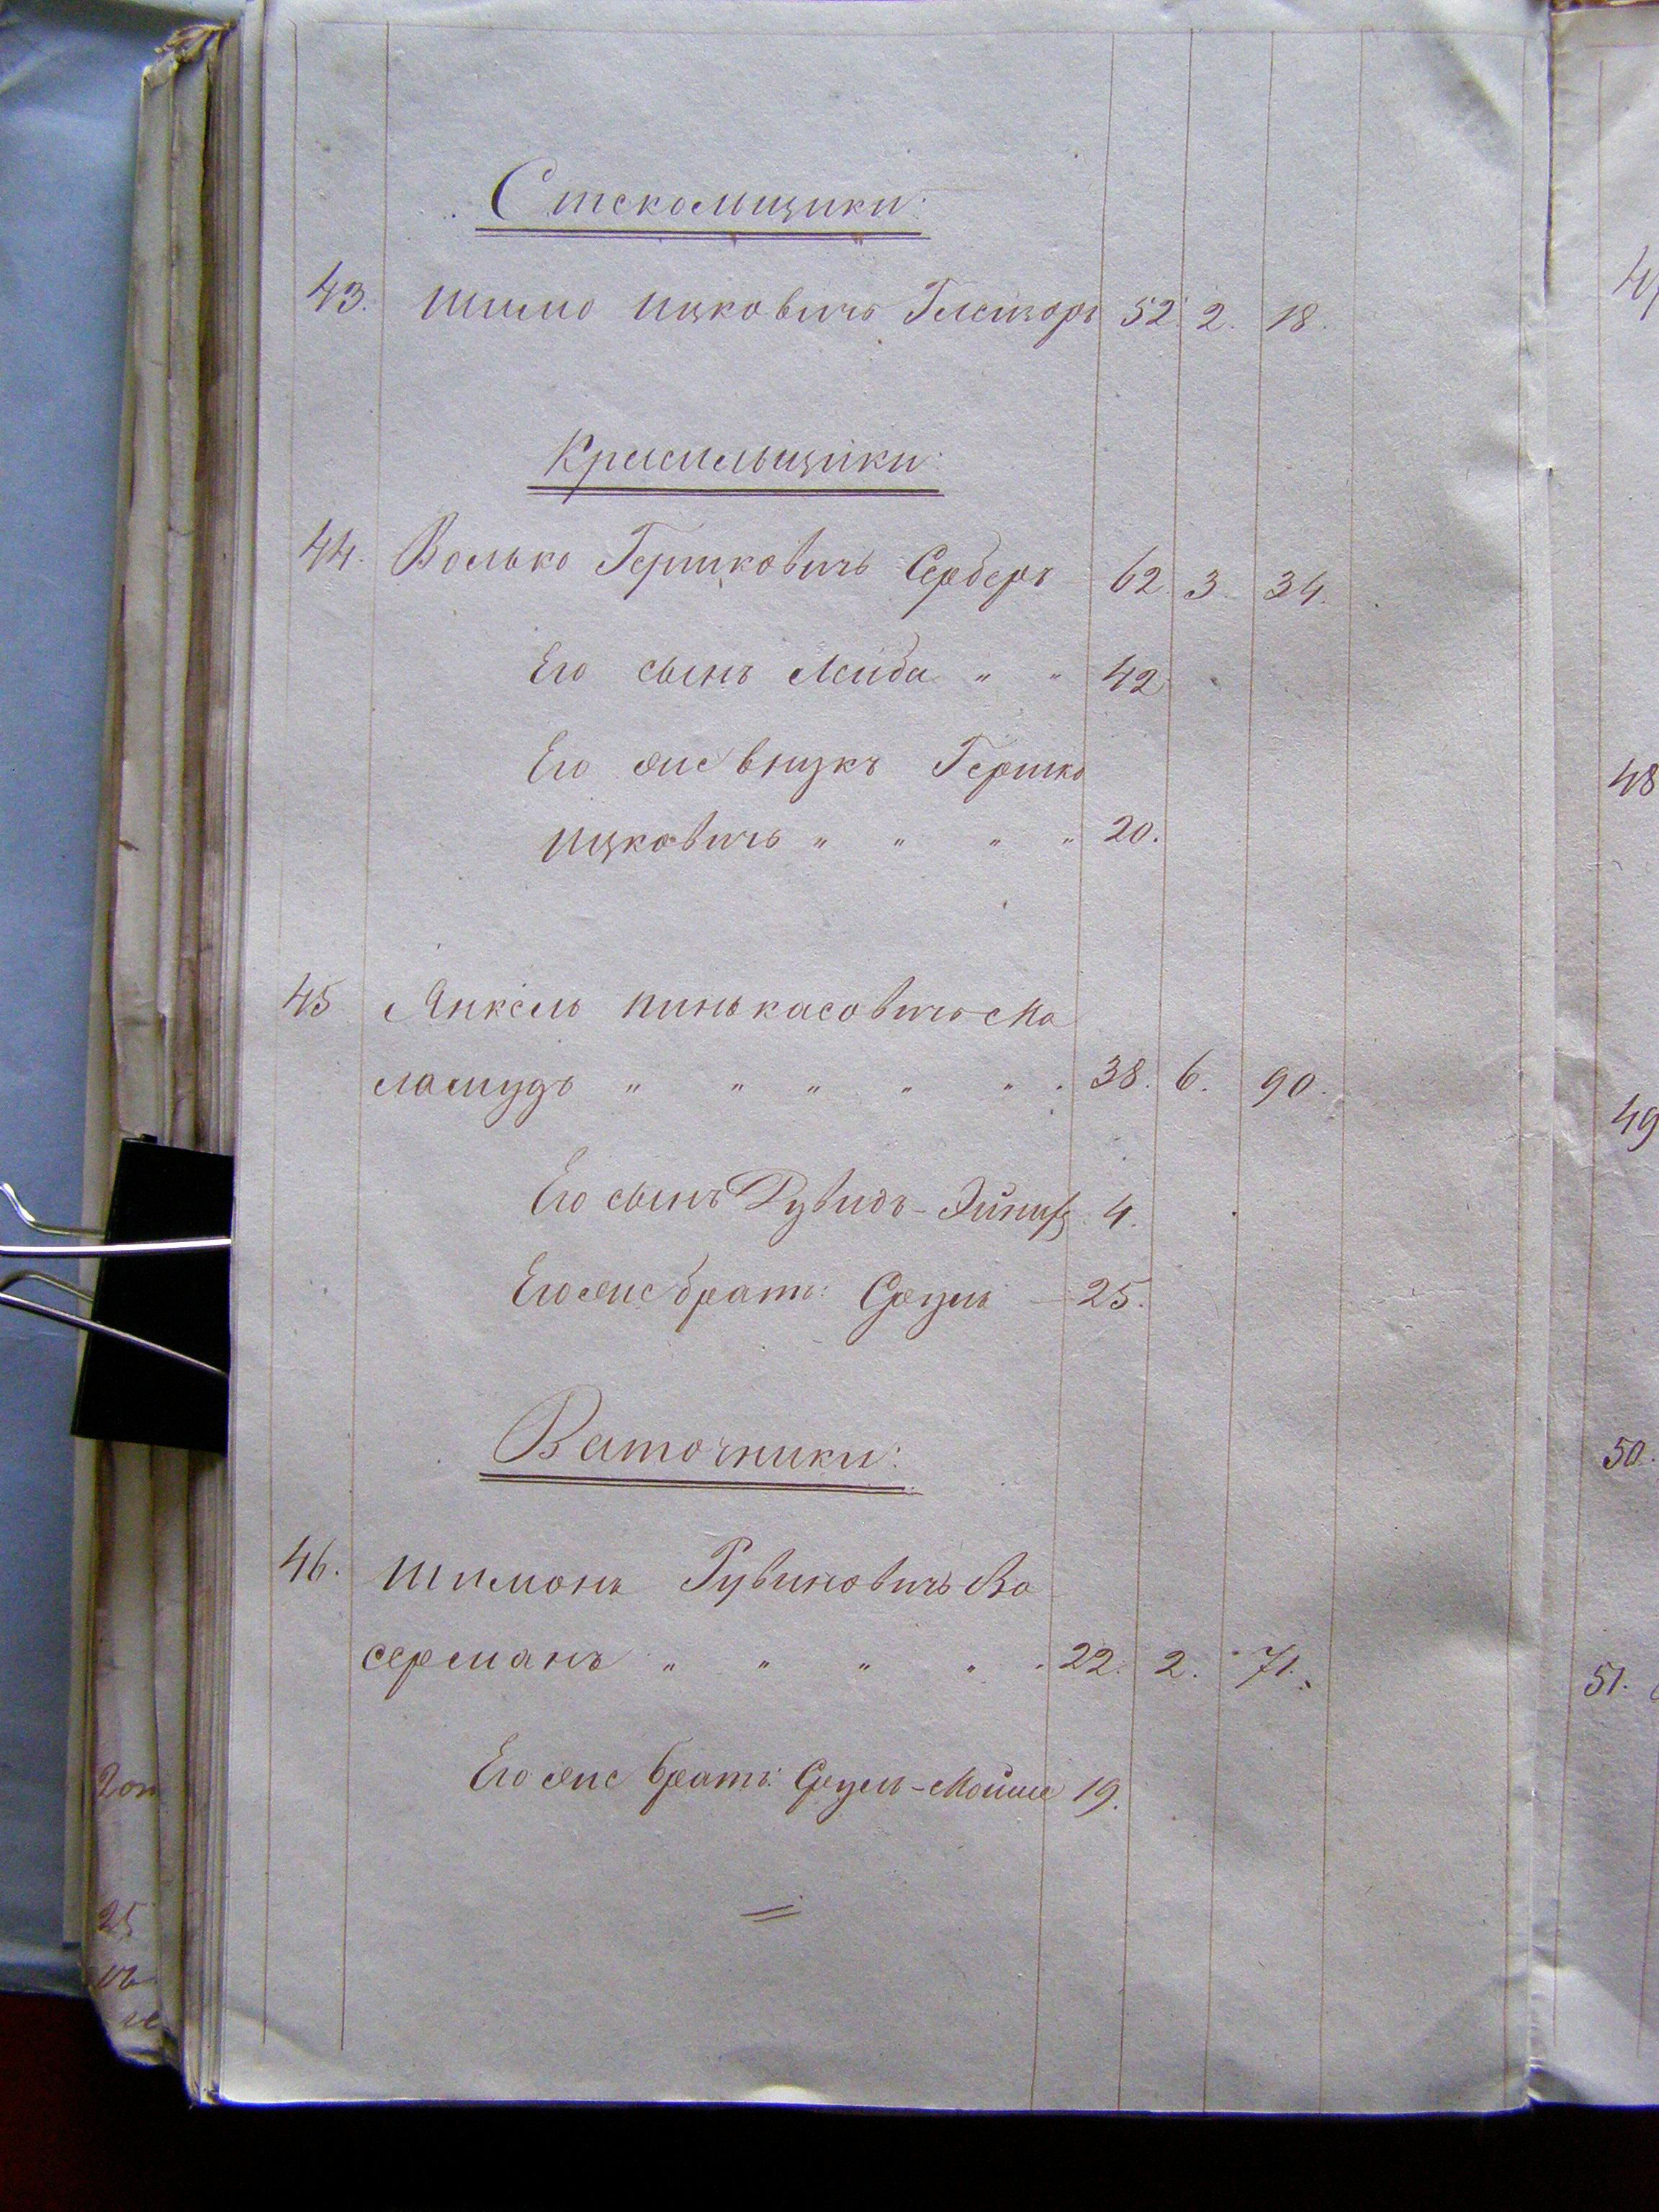 Стекольщики:
43. Шимо Ицковичъ Глезеръ 52. 2. 18.
Красильщики:
44. Волько Гершковичъ Серберъ 62. 3. 34.
Его сынъ Лейба " " 42
Его же внукъ Гершко
Ицковичъ " " " " 20.
45 Янкель Пинькасовичъ Ма
ламудъ " " " " " 38. 6. 90.
Его сынъ 4.
Его же братъ: Сруль — 25.
Ваточники:
46. Шимонъ Рувиновичъ Ва
серманъ " " " " " 22. 2. 71.
Его же братъ: Сруль-Мойше 19.
48
49
50.
51.
25